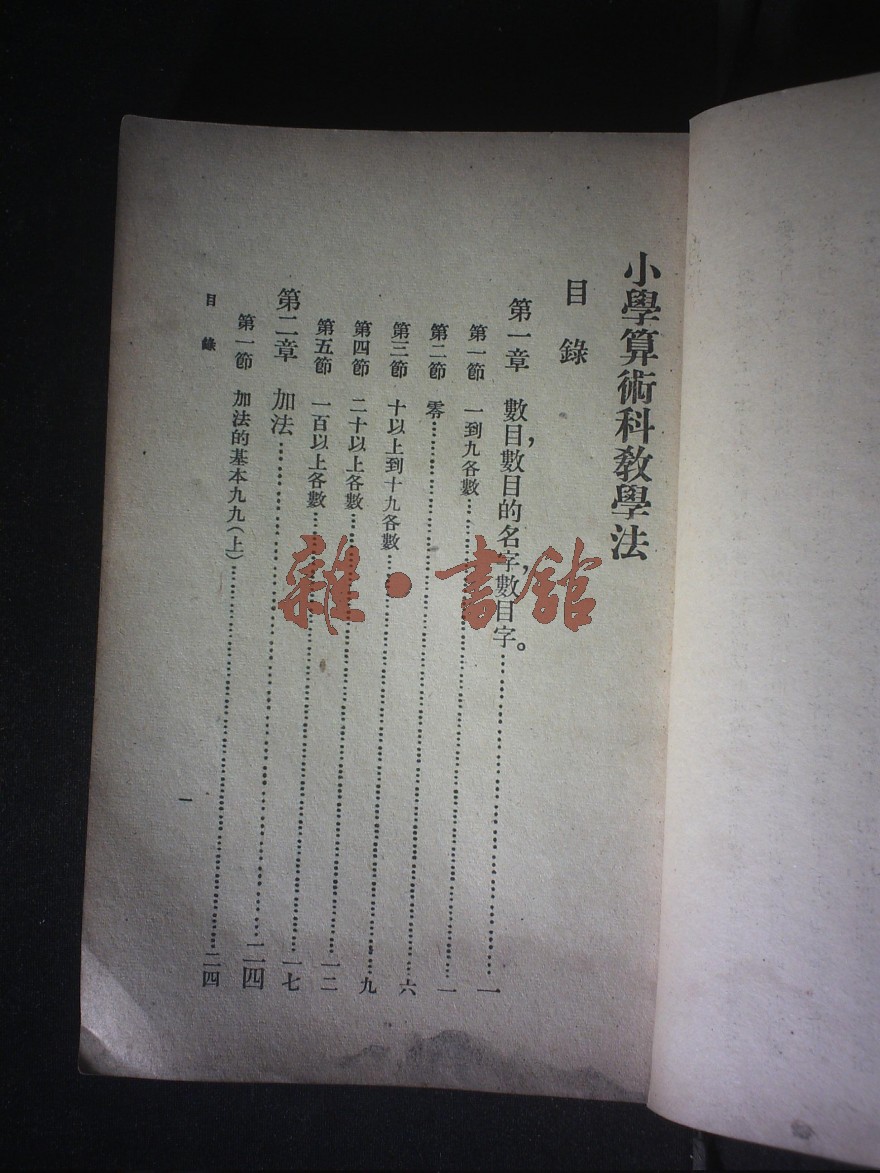 小學算術科教學法
目錄
第一章 數目,數目的名字,數目字。……一
第一節 一到九各數……一
第二節 零……六
第三節 十以上到十九各數……九
第四節 二十以上各數……一二
第五節 一百以上各數……一七
第二章 加法……二四
第一節 加法的基本九九(上)……二四
目錄
一
雜·書館